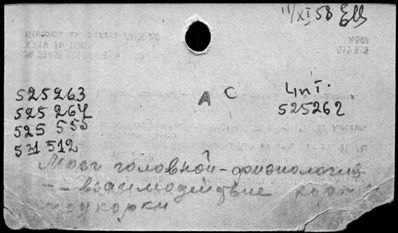 11/XI 58
525263
525 264
525 555
531 512
А С
525262
Мозг головной - физиология
-- взаимодействие коры
подкорки